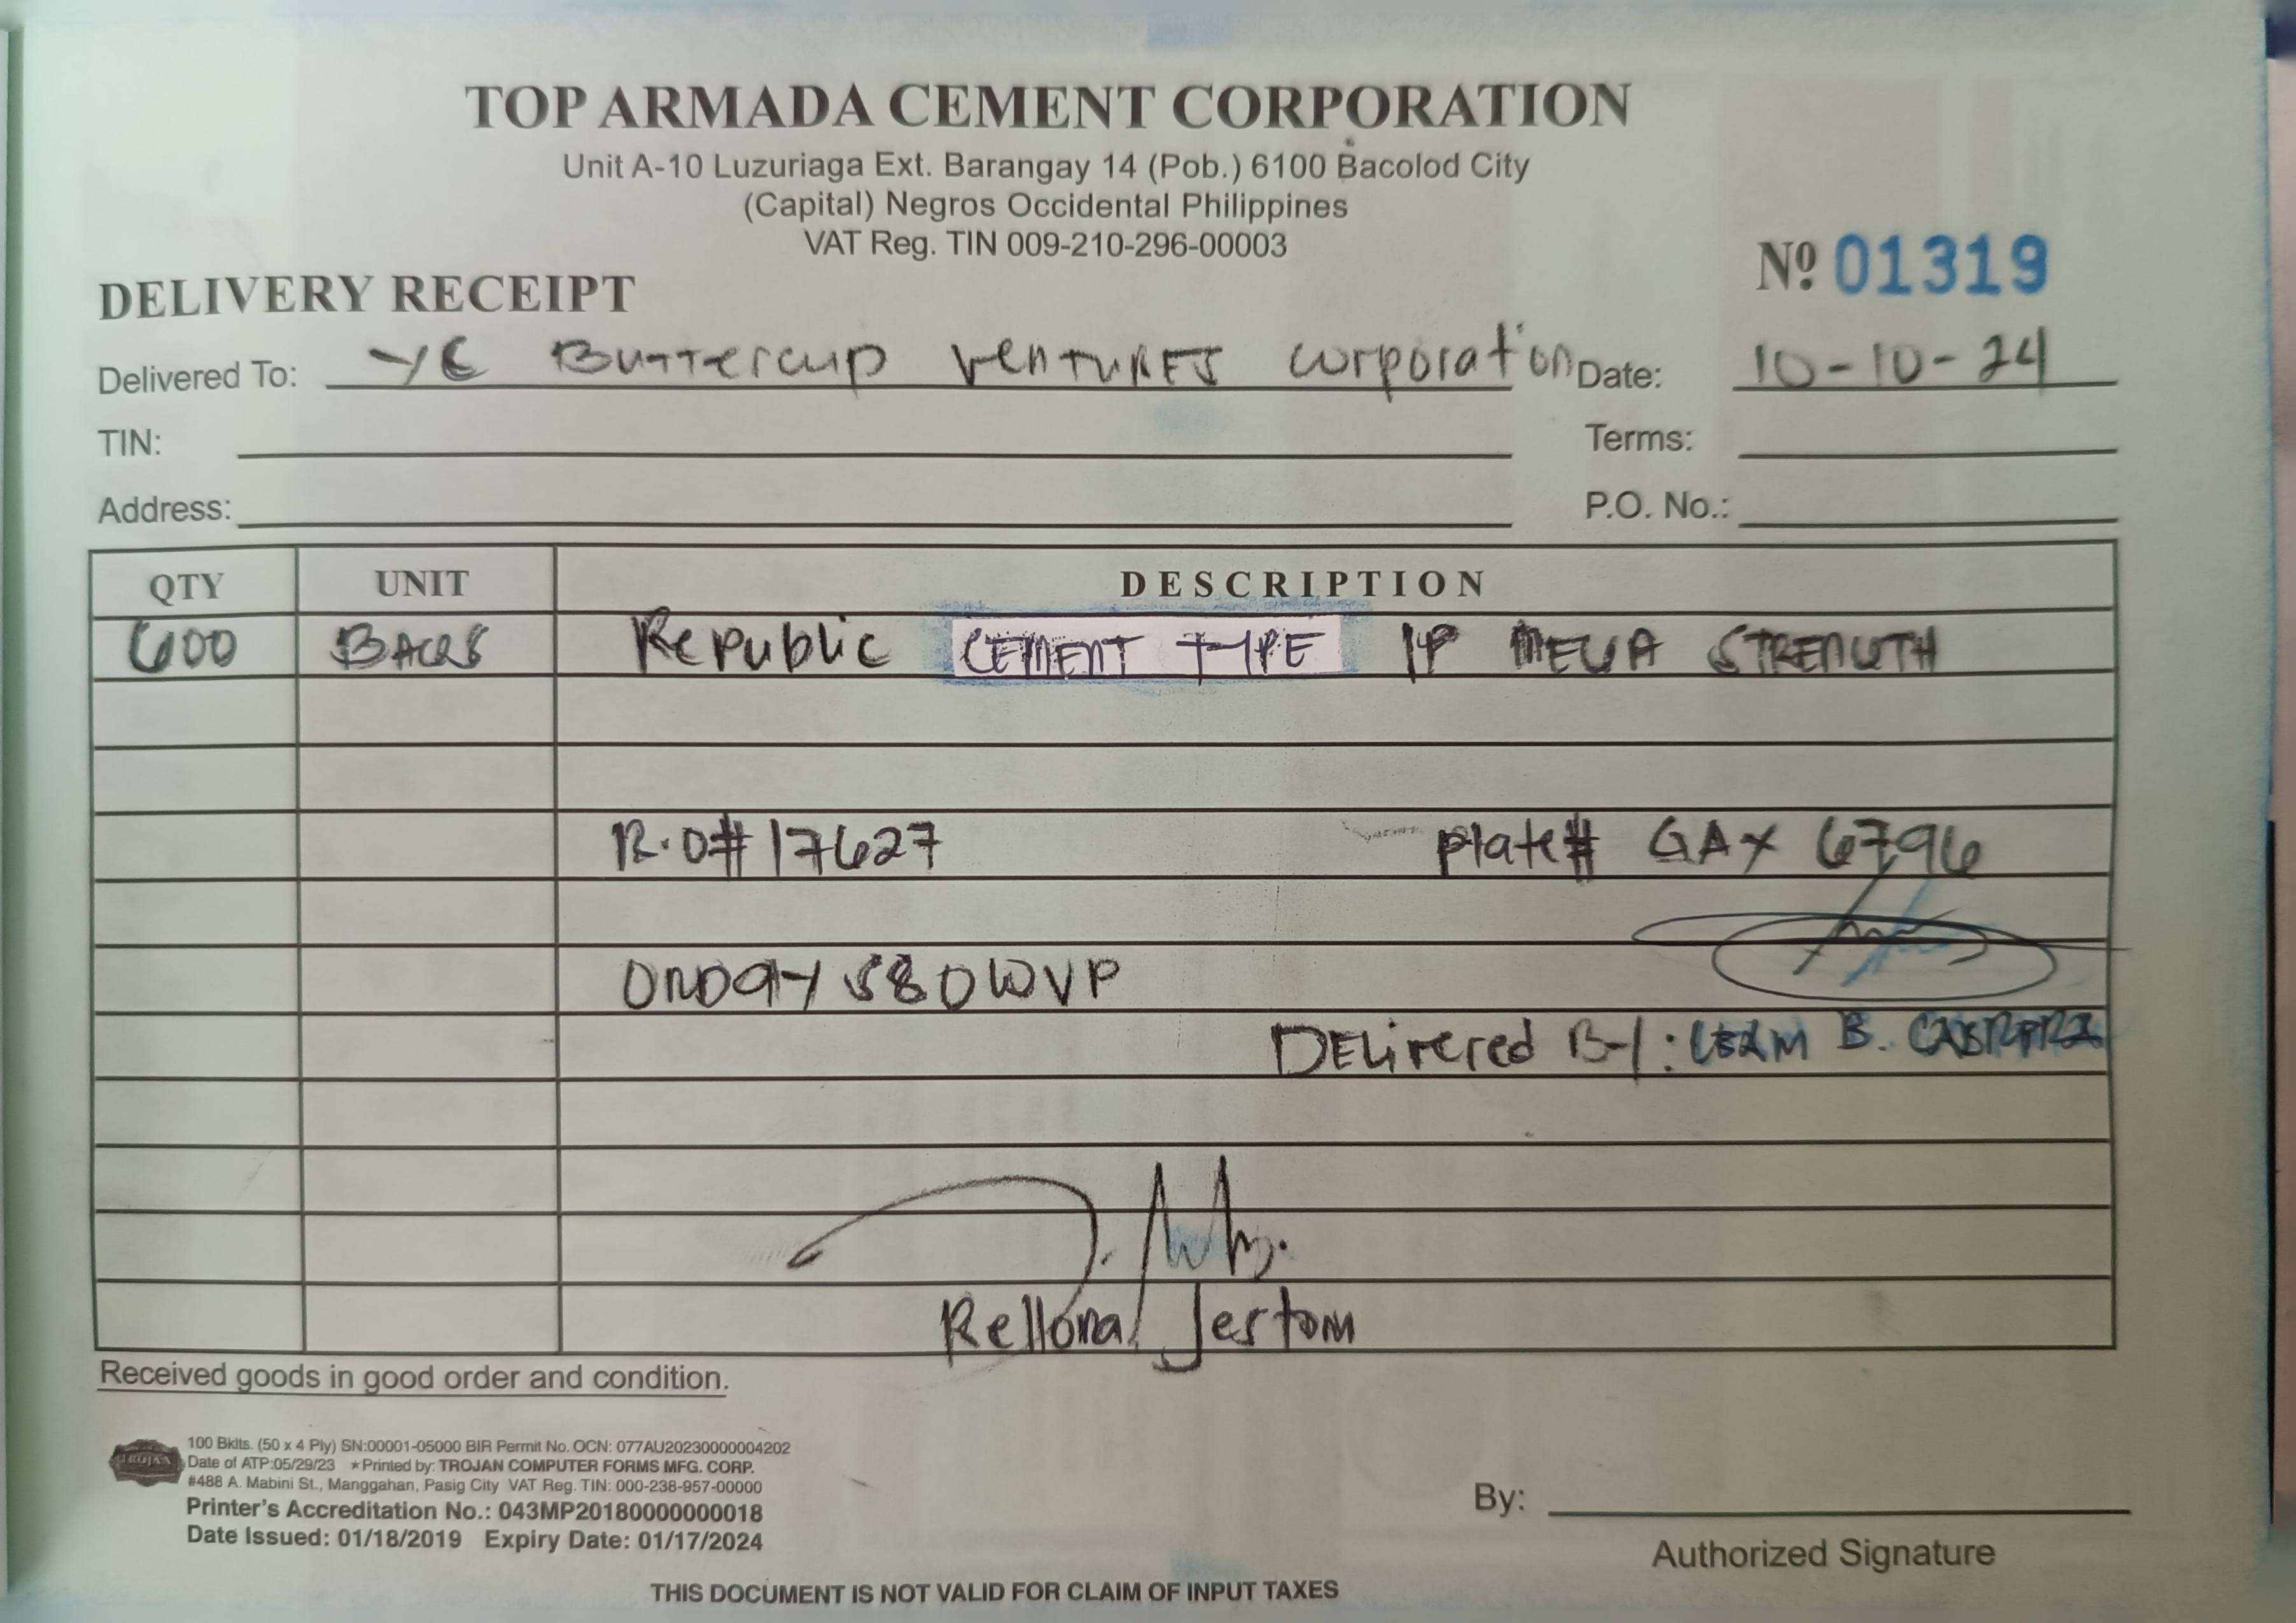 TOP ARMADA CEMENT CORPORATION
Unit A-10 Luzuriaga Ext. Barangay 14 (Pob.) 6100 Bacolod City
(Capital) Negros Occidental Philippines
VAT Reg. TIN 009-210-296-00003
Nº 01319
DELIVERY RECEIPT
Delivered To: YE Buttercup Ventures Corporation Date: 10-10-24
TIN: Terms:
Address: P.O. No.:
QTY UNIT DESCRIPTION
600 BAGS Republic CEMENT TYPE 1P MEGA STRENGTH
R.O# 17627 Plate# GAX 6796
Delivered By: B.
Rellona Jestom
Received goods in good order and condition.
TROJAN
100 Bklts. (50 x 4 Ply) SN:00001-05000 BIR Permit No. OCN: 077AU20230000004202
Date of ATP:05/29/23 ★Printed by: TROJAN COMPUTER FORMS MFG. CORP.
#488 A. Mabini St., Manggahan, Pasig City VAT Reg. TIN: 000-238-957-00000
Printer's Accreditation No.: 043MP20180000000018
Date Issued: 01/18/2019 Expiry Date: 01/17/2024
By:
Authorized Signature
THIS DOCUMENT IS NOT VALID FOR CLAIM OF INPUT TAXES